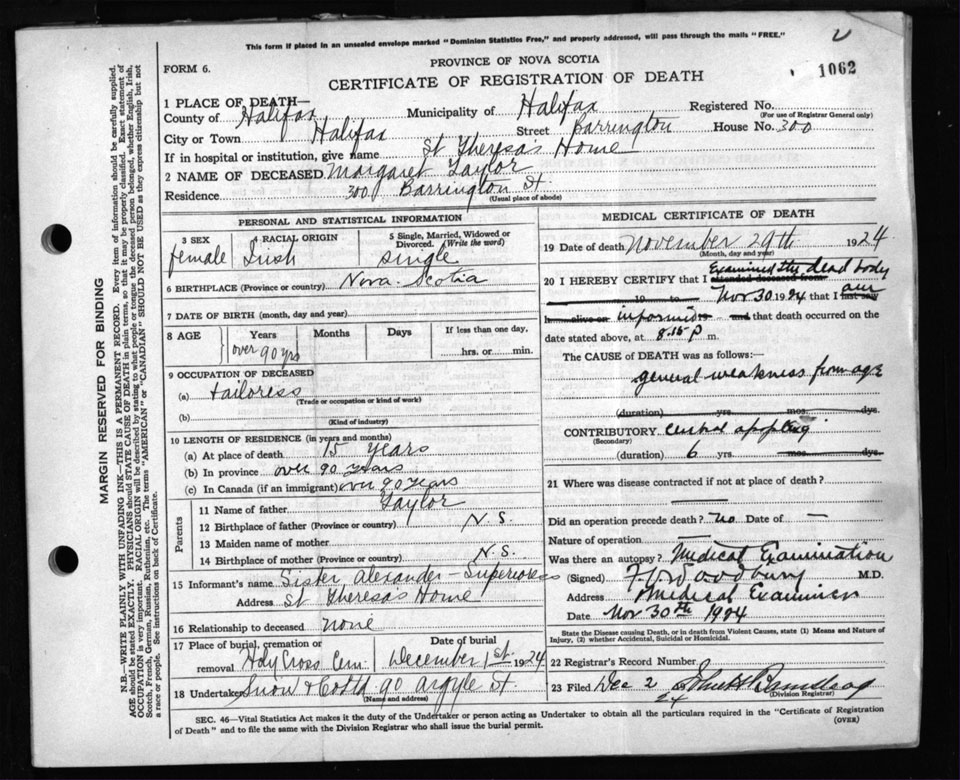 This form if placed in an unsealed envelope marked "Dominion Statistics Free," and properly addressed, will pass through the mails "FREE."
PROVINCE OF NOVA SCOTIA
FORM 6.
CERTIFICATE OF REGISTRATION OF DEATH
1062
1 PLACE OF DEATH—
County of Halifax Municipality of Halifax Registered No.
(For use of Registrar General only)
City or Town Halifax Street Barrington House No. 300
If in hospital or institution, give name St Theresa's Home
2 NAME OF DECEASED Margaret Taylor
Residence 300 Barrington St.
(Usual place of abode)
PERSONAL AND STATISTICAL INFORMATION
3 SEX female
4 RACIAL ORIGIN Irish
5 Single, Married, Widowed or Divorced. (Write the word) single
6 BIRTHPLACE (Province or country) Nova Scotia
7 DATE OF BIRTH (month, day and year)
8 AGE Years Months Days If less than one day,
over 90 yrs hrs. or min.
9 OCCUPATION OF DECEASED
(a) tailoress
(Trade or occupation or kind of work)
(b)
(Kind of industry)
10 LENGTH OF RESIDENCE (in years and months)
(a) At place of death 15 years
(b) In province over 90 years
(c) In Canada (if an immigrant) over 90 years
Parents
11 Name of father Taylor
12 Birthplace of father (Province or country) N.S.
13 Maiden name of mother
14 Birthplace of mother (Province or country) N.S.
15 Informant's name Sister Alexander - Superioress
Address St Theresa's Home
16 Relationship to deceased none
17 Place of burial, cremation or removal Holy Cross Cem. Date of burial December 1st 1924
18 Undertaker Snow & Co Ltd 90 Argyle St
(Name and address)
MEDICAL CERTIFICATE OF DEATH
19 Date of death November 29th 1924
(Month, day and year)
20 I HEREBY CERTIFY that I attended deceased from Examined the dead body
to Nov 30 1924 that I last saw am
h alive on informed and that death occurred on the
date stated above, at 8.15 P m.
The CAUSE of DEATH was as follows:
general weakness from age
(duration) yrs. mos. dys.
CONTRIBUTORY
(Secondary)
(duration) 6 yrs. mos. dys.
21 Where was disease contracted if not at place of death?
Did an operation precede death? no Date of —
Nature of operation —
Was there an autopsy? Medical Examination
(Signed) Woodbury M.D.
Address Medical Examiner
Date Nov 30th 1924
State the Disease causing Death, or in death from Violent Causes, state (1) Means and Nature of Injury, (2) whether Accidental, Suicidal or Homicidal.
22 Registrar's Record Number
23 Filed Dec 2 24
(Division Registrar)
SEC. 46—Vital Statistics Act makes it the duty of the Undertaker or person acting as Undertaker to obtain all the particulars required in the "Certificate of Registration
of Death" and to file the same with the Division Registrar who shall issue the burial permit.
(OVER)
MARGIN RESERVED FOR BINDING
N.B.—WRITE PLAINLY WITH UNFADING INK—THIS IS A PERMANENT RECORD. Every item of information should be carefully supplied.
AGE should be stated EXACTLY. PHYSICIANS should STATE CAUSE OF DEATH in plain terms, so that it may be properly classified. Exact statement of
OCCUPATION is very important. RACIAL ORIGIN will be described by stating to what people or tongue the deceased person belonged, whether English, Irish,
Scotch, French, German, Russian, Ruthenian, etc. The terms "AMERICAN" or "CANADIAN" SHOULD NOT BE USED as they express citizenship but not
a race or people. See instructions on back of Certificate.